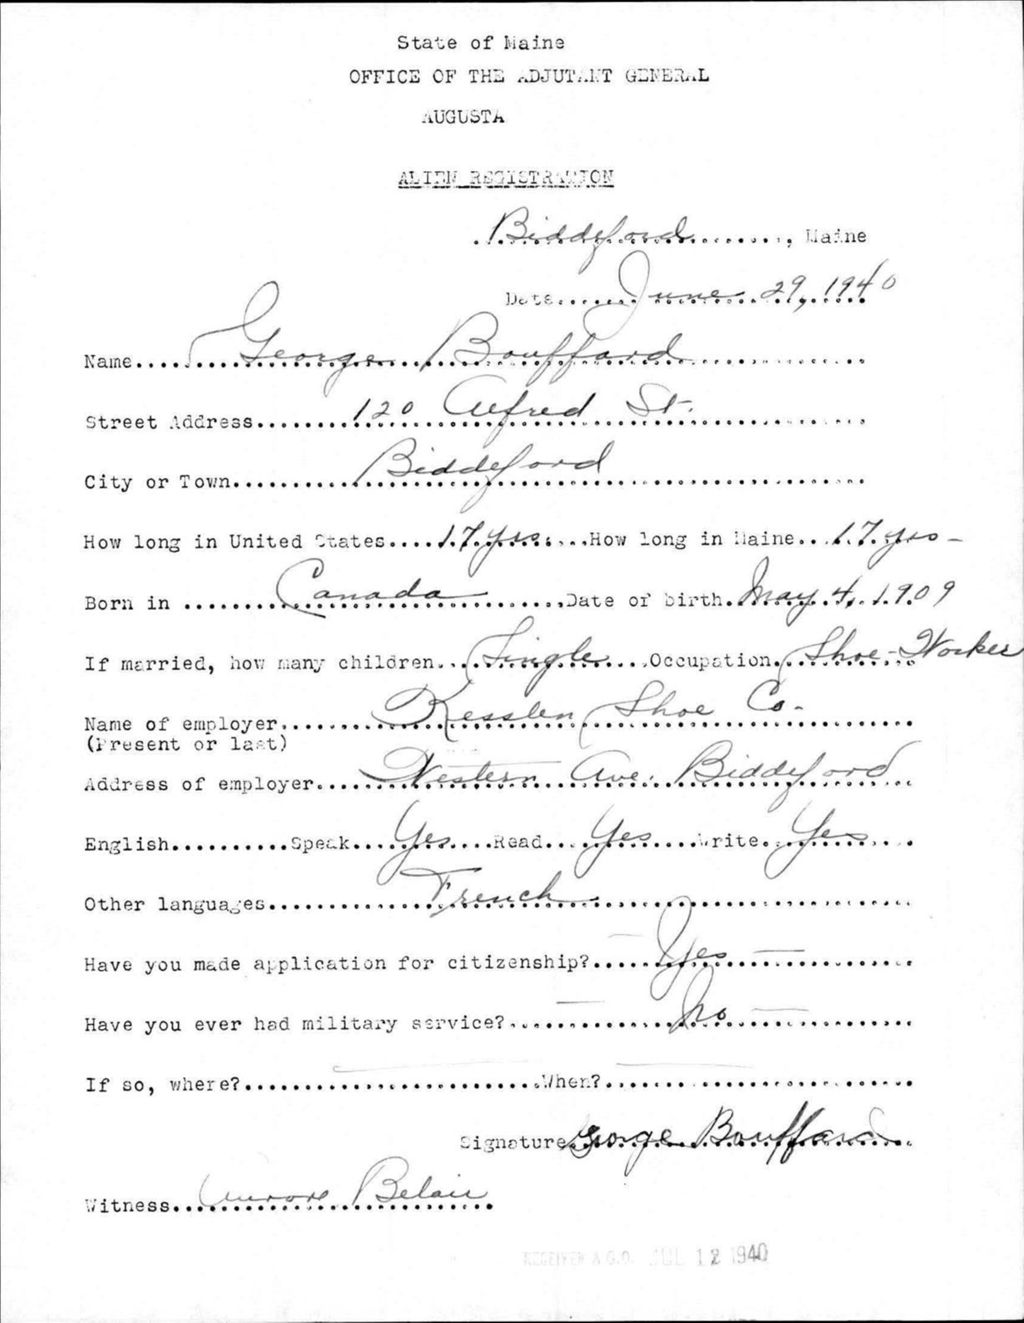 State of Maine
OFFICE OF THE ADJUTANT GENERAL
AUGUSTA
ALIEN REGISTRATION
Biddeford, Maine
Date June 29, 1940
Name George Bouffard
Street Address 120 Alfred St.
City or Town Biddeford
How long in United States 17 yrs. How long in Maine 17 yrs
Born in Canada Date of birth May 4, 1909
If married, how many children Single Occupation Shoe-Worker
Name of employer Kesslen Shoe Co.
(Present or last)
Address of employer Western Ave. Biddeford
English Speak Yes Read Yes Write Yes
Other languages French
Have you made application for citizenship? Yes
Have you ever had military service? No
If so, where? When?
Signature George Bouffard
Witness Aurore Belair
RECEIVED A.G.O. JUL 12 1940